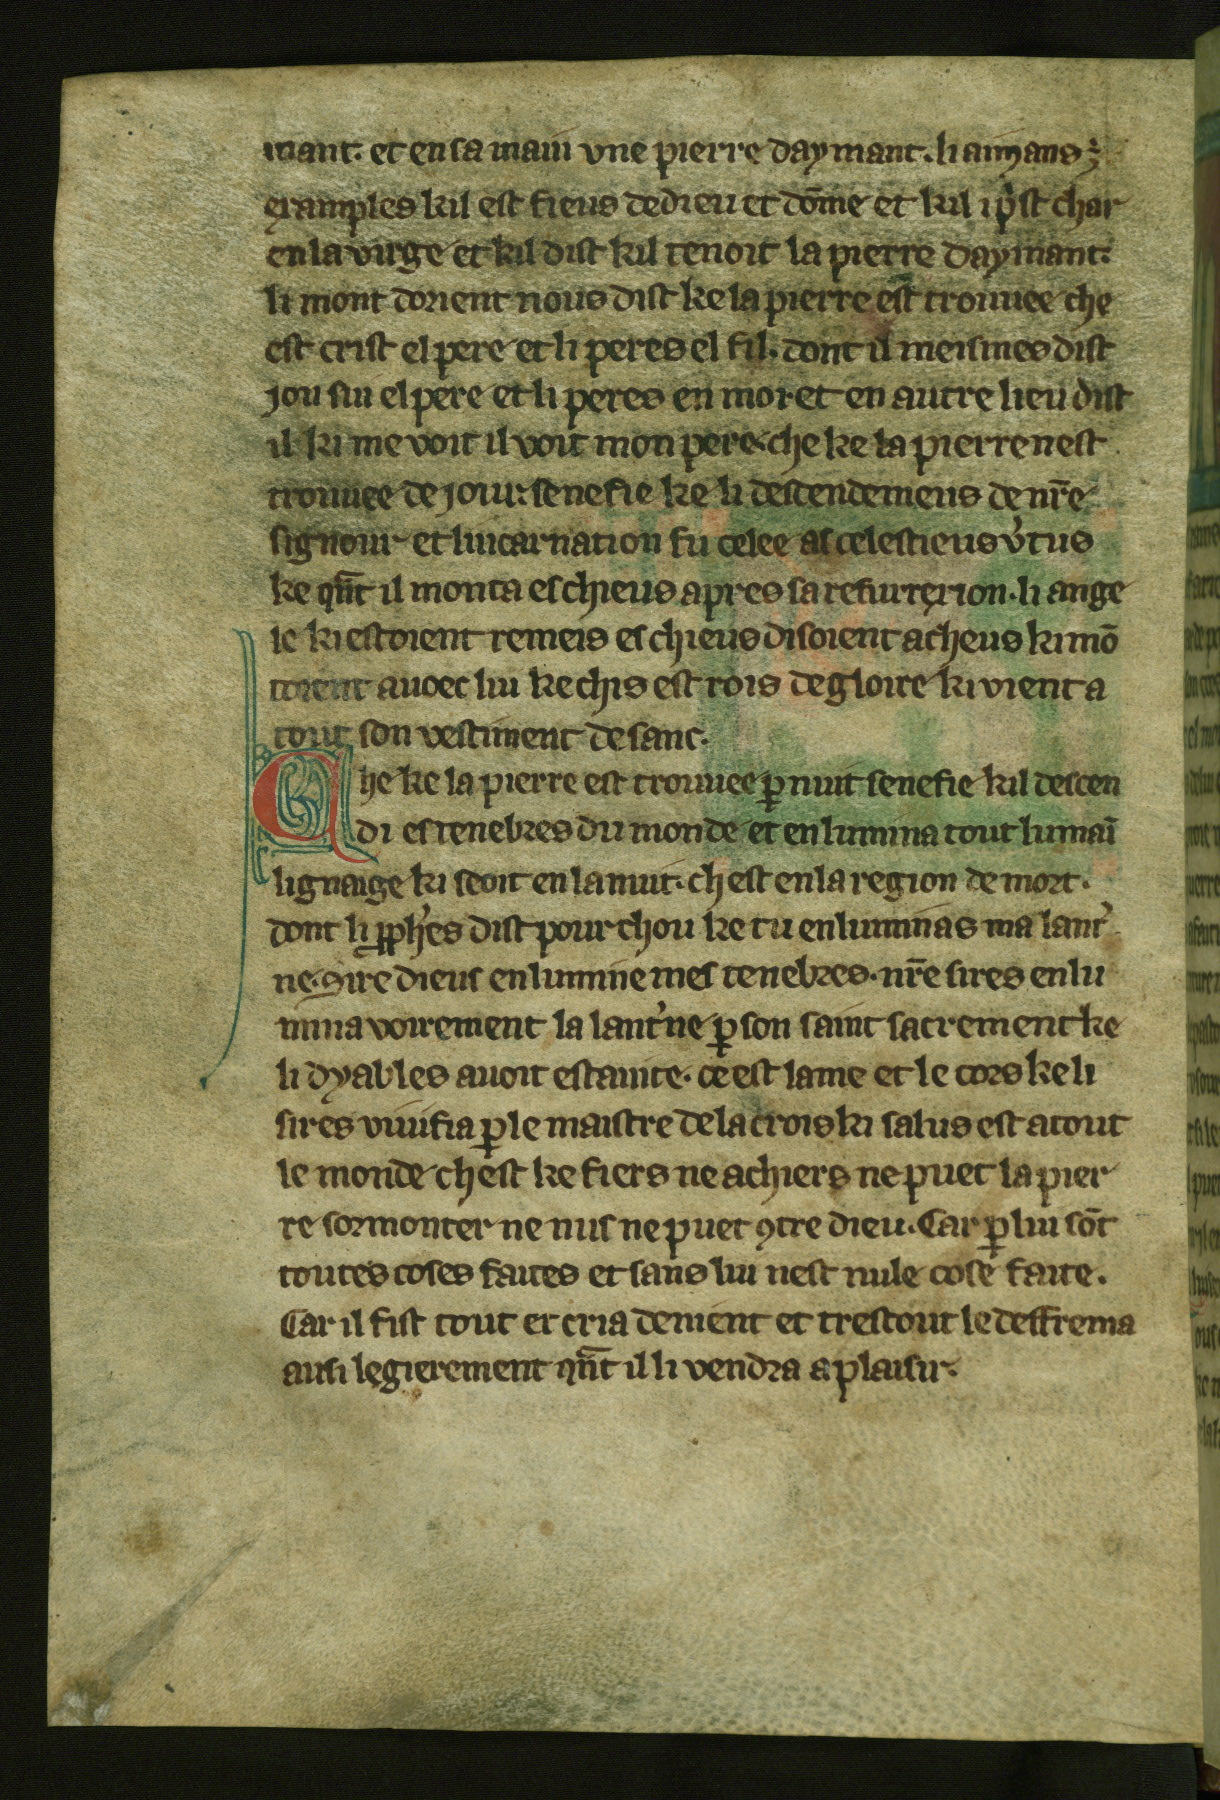 mant. et en sa main vne pierre daymant. li aimans ⁊
examples kil est fieus de dieu et dōme et kil i pͥst char
en la virge et kil dist kil tenoit la pierre daymant.
li mont dorient nous dist ke la pierre est trouuee che
est crist el pere et li peres el fil. dont il meismes dist
jou sui el pere et li peres en moi et en autre lieu dist
il ki me voit il voit mon pere. che ke la pierre nest
trouuee de jour. senefie ke li descendemens de nr̄e
signour et lincarnation fu celee as celestieus v̓tus
ke qn̄t il monta es chieus apres sa resurrexion. li ange
le ki estoient remeis es chieus disoient a cheus ki mō
toient auoec lui ke chis est rois de gloire ki vient a
tout son vestiment de sanc.
Che ke la pierre est trouuee ꝑ nuit senefie kil descen
di es tenebres du monde et enlumina tout lumaī
lignaige ki seoit en la nuit. ch est en la region de mort.
dont li ꝓph̓es dist pour chou ke tu enluminas ma lant̓
ne. sire dieus enlumine mes tenebres. nr̄e sires enlu
mina voirement la lant̓ne ꝑ son saint sacrement ke
li dyables auoit estainte. ce est lame et le cors ke li
sires viuifia ꝑ le maistre de la crois ki salus est a tout
le monde ch est ke fiers ne achiers ne puet la pier
re sormonter ne nus ne puet ꝯtre dieu. Car ꝑ lui sōt
toutes coses faites et sans lui nest nule cose faite.
Car il fist tout et cria de nient et trestout le deffrema
ausi legierement qn̄t il li vendra a plaisir.